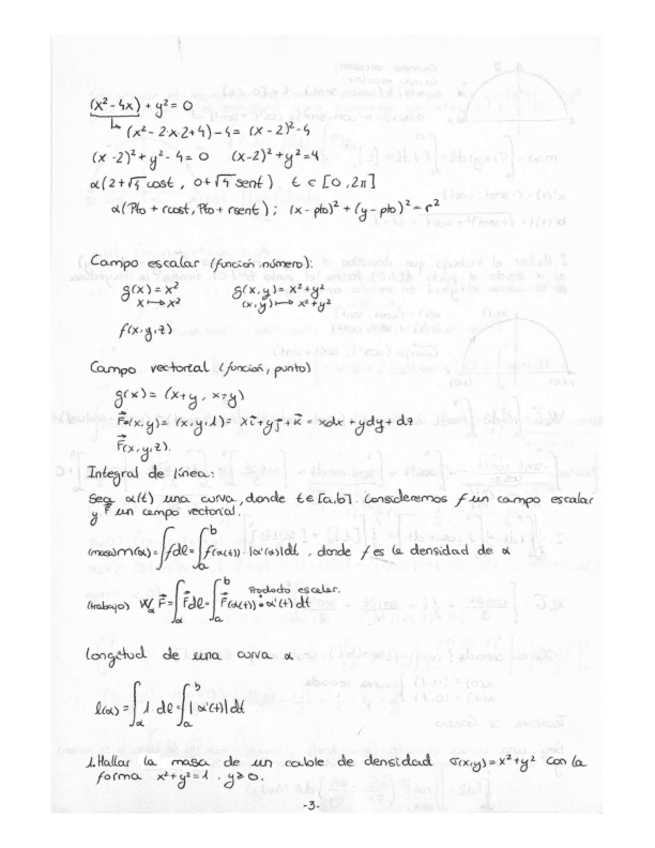 (x² - 4x) + y² = 0
↳ (x² - 2·x·2 + 4) - 4 = (x - 2)² - 4
(x - 2)² + y² - 4 = 0 (x - 2)² + y² = 4
α(2 + √4 cost, 0 + √4 sent) t ∈ [0, 2π]
α(Pto + rcost, Pto + rsent) ; (x - pto)² + (y - pto)² = r²
Campo escalar (función, número):
g(x) = x² g(x, y) = x² + y²
x ⟼ x² (x, y) ⟼ x² + y²
f(x, y, z)
Campo vectorial (función, punto)
g(x) = (x + y, x - y)
F(x, y) = (x, y, 1) = xi + yj + k = xdx + ydy + dz
F(x, y, z).
Integral de línea:
Sea α(t) una curva, donde t ∈ [a, b]. Consideremos f un campo escalar
y F un campo vectorial.
(masa) m(α) = ∫α fdl = ∫ab f(α(t)) · |α'(t)| dt, donde f es la densidad de α
Producto escalar.
(trabajo) Wα F = ∫α F dl = ∫ab F(α(t)) • α'(t) dt
longitud de una curva α
l(α) = ∫α 1 · dl = ∫ab |α'(t)| dt
1. Hallar la masa de un cable de densidad σ(x, y) = x² + y² con la
forma x² + y² = 1, y ≥ 0.
-3-